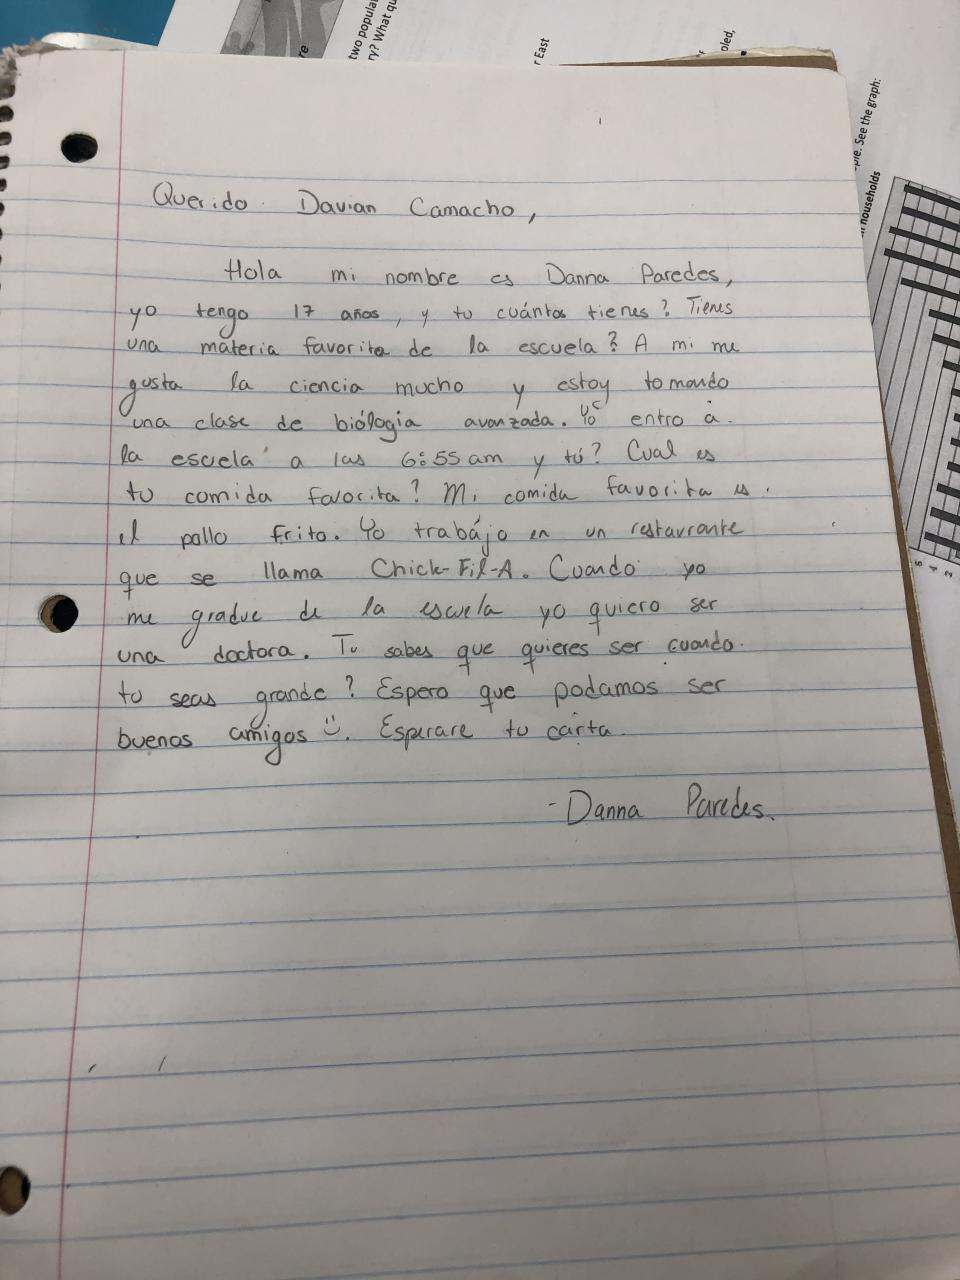 two popula
ry? What qu
re
r East
pled,
ple. See the graph:
households
Querido Davian Camacho,
Hola mi nombre es Danna Paredes,
yo tengo 17 años, y tu cuántos tienes? Tienes
una materia favorita de la escuela? A mi me
gusta la ciencia mucho y estoy tomando
una clase de biólogia avanzada. Yo entro a
la escuela a las 6:55 am y tú? Cual es
tu comida favorita? Mi comida favorita es
el pollo frito. Yo trabájo en un restaurante
que se llama Chick-Fil-A. Cuando yo
me gradue de la escuela yo quiero ser
una doctora. Tu sabes que quieres ser cuando
tu seas grande? Espero que podamos ser
buenos amigos Ü. Esperare tu carta
-Danna Paredes.
5
4
3